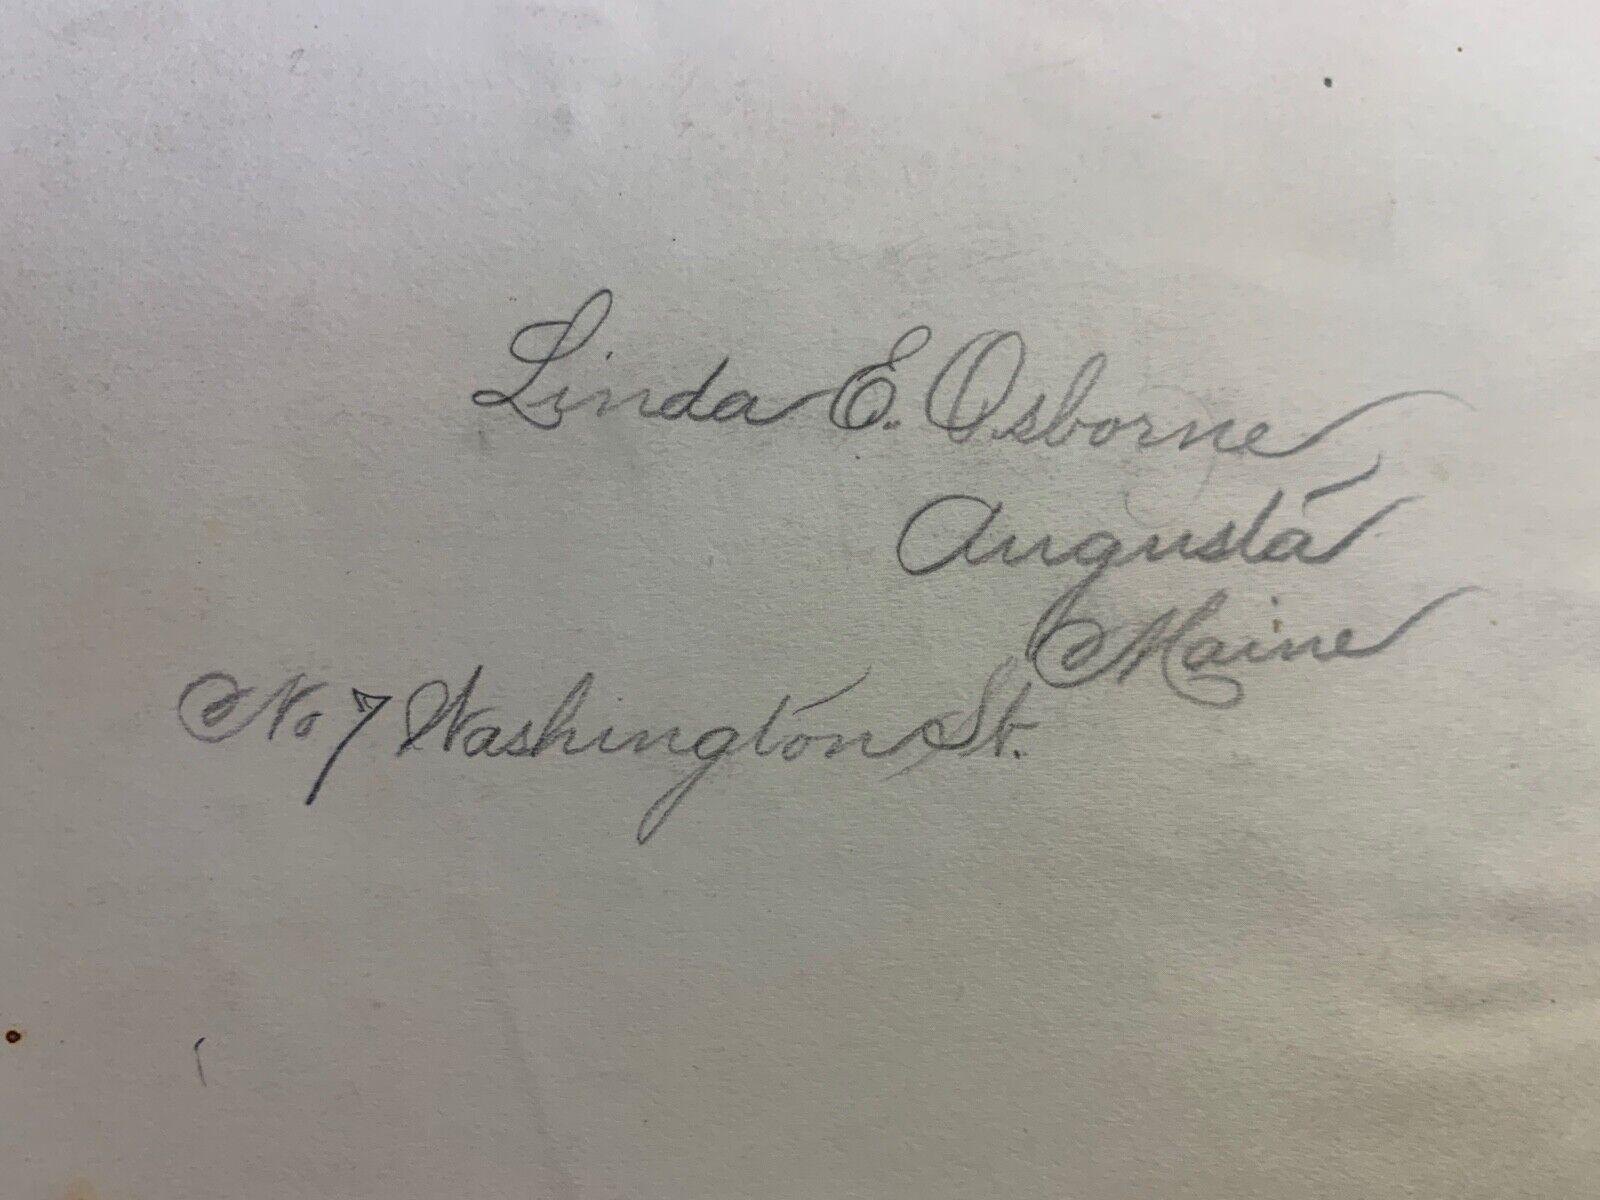 Linda E. Osborne
Augusta
Maine
No 7 Washington St.